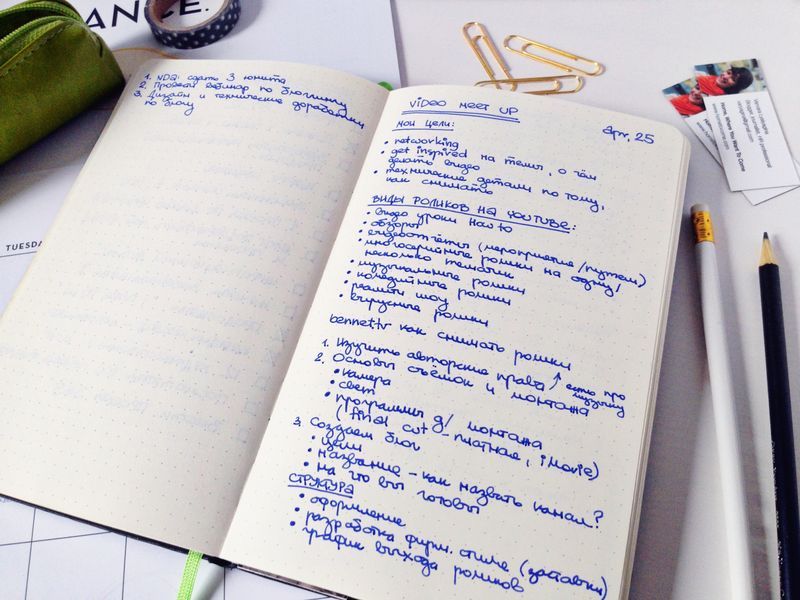 ANCE.
TUESDA
1. NDQ: сдать 3 юнита
2. Провести вебинар по блоггингу
3. Дизайн и технические доработки
по блогу
VIDEO MEET UP
Apr, 25
мои цели:
• networking
• get inspired на темы, о чём
делать видео
• технические детали по тому,
как снимать
ВИДЫ РОЛИКОВ НА YOUTUBE:
• видео уроки How to
• обзоры
• видеоотчёты (мероприятие/путеш)
• многосерийные ролики на одну/
несколько тематик
• музыкальные ролики
• комедийные ролики
• реалити шоу
• вирусные ролики
bennet.tv как снимать ролики
1. Изучить авторские права ↑ есть про
музыку
2. Основы съёмок и монтажа
• камера
• свет
• программы д/ монтажа
(final cut - платная, iMovie)
3. Создаем блог
• цели
• название - как назвать канал?
• на что вы готовы
СТРУКТУРА
• оформление
• разработка фирм. стиля (заставки)
• график выхода роликов
Home, Where You Want To Come